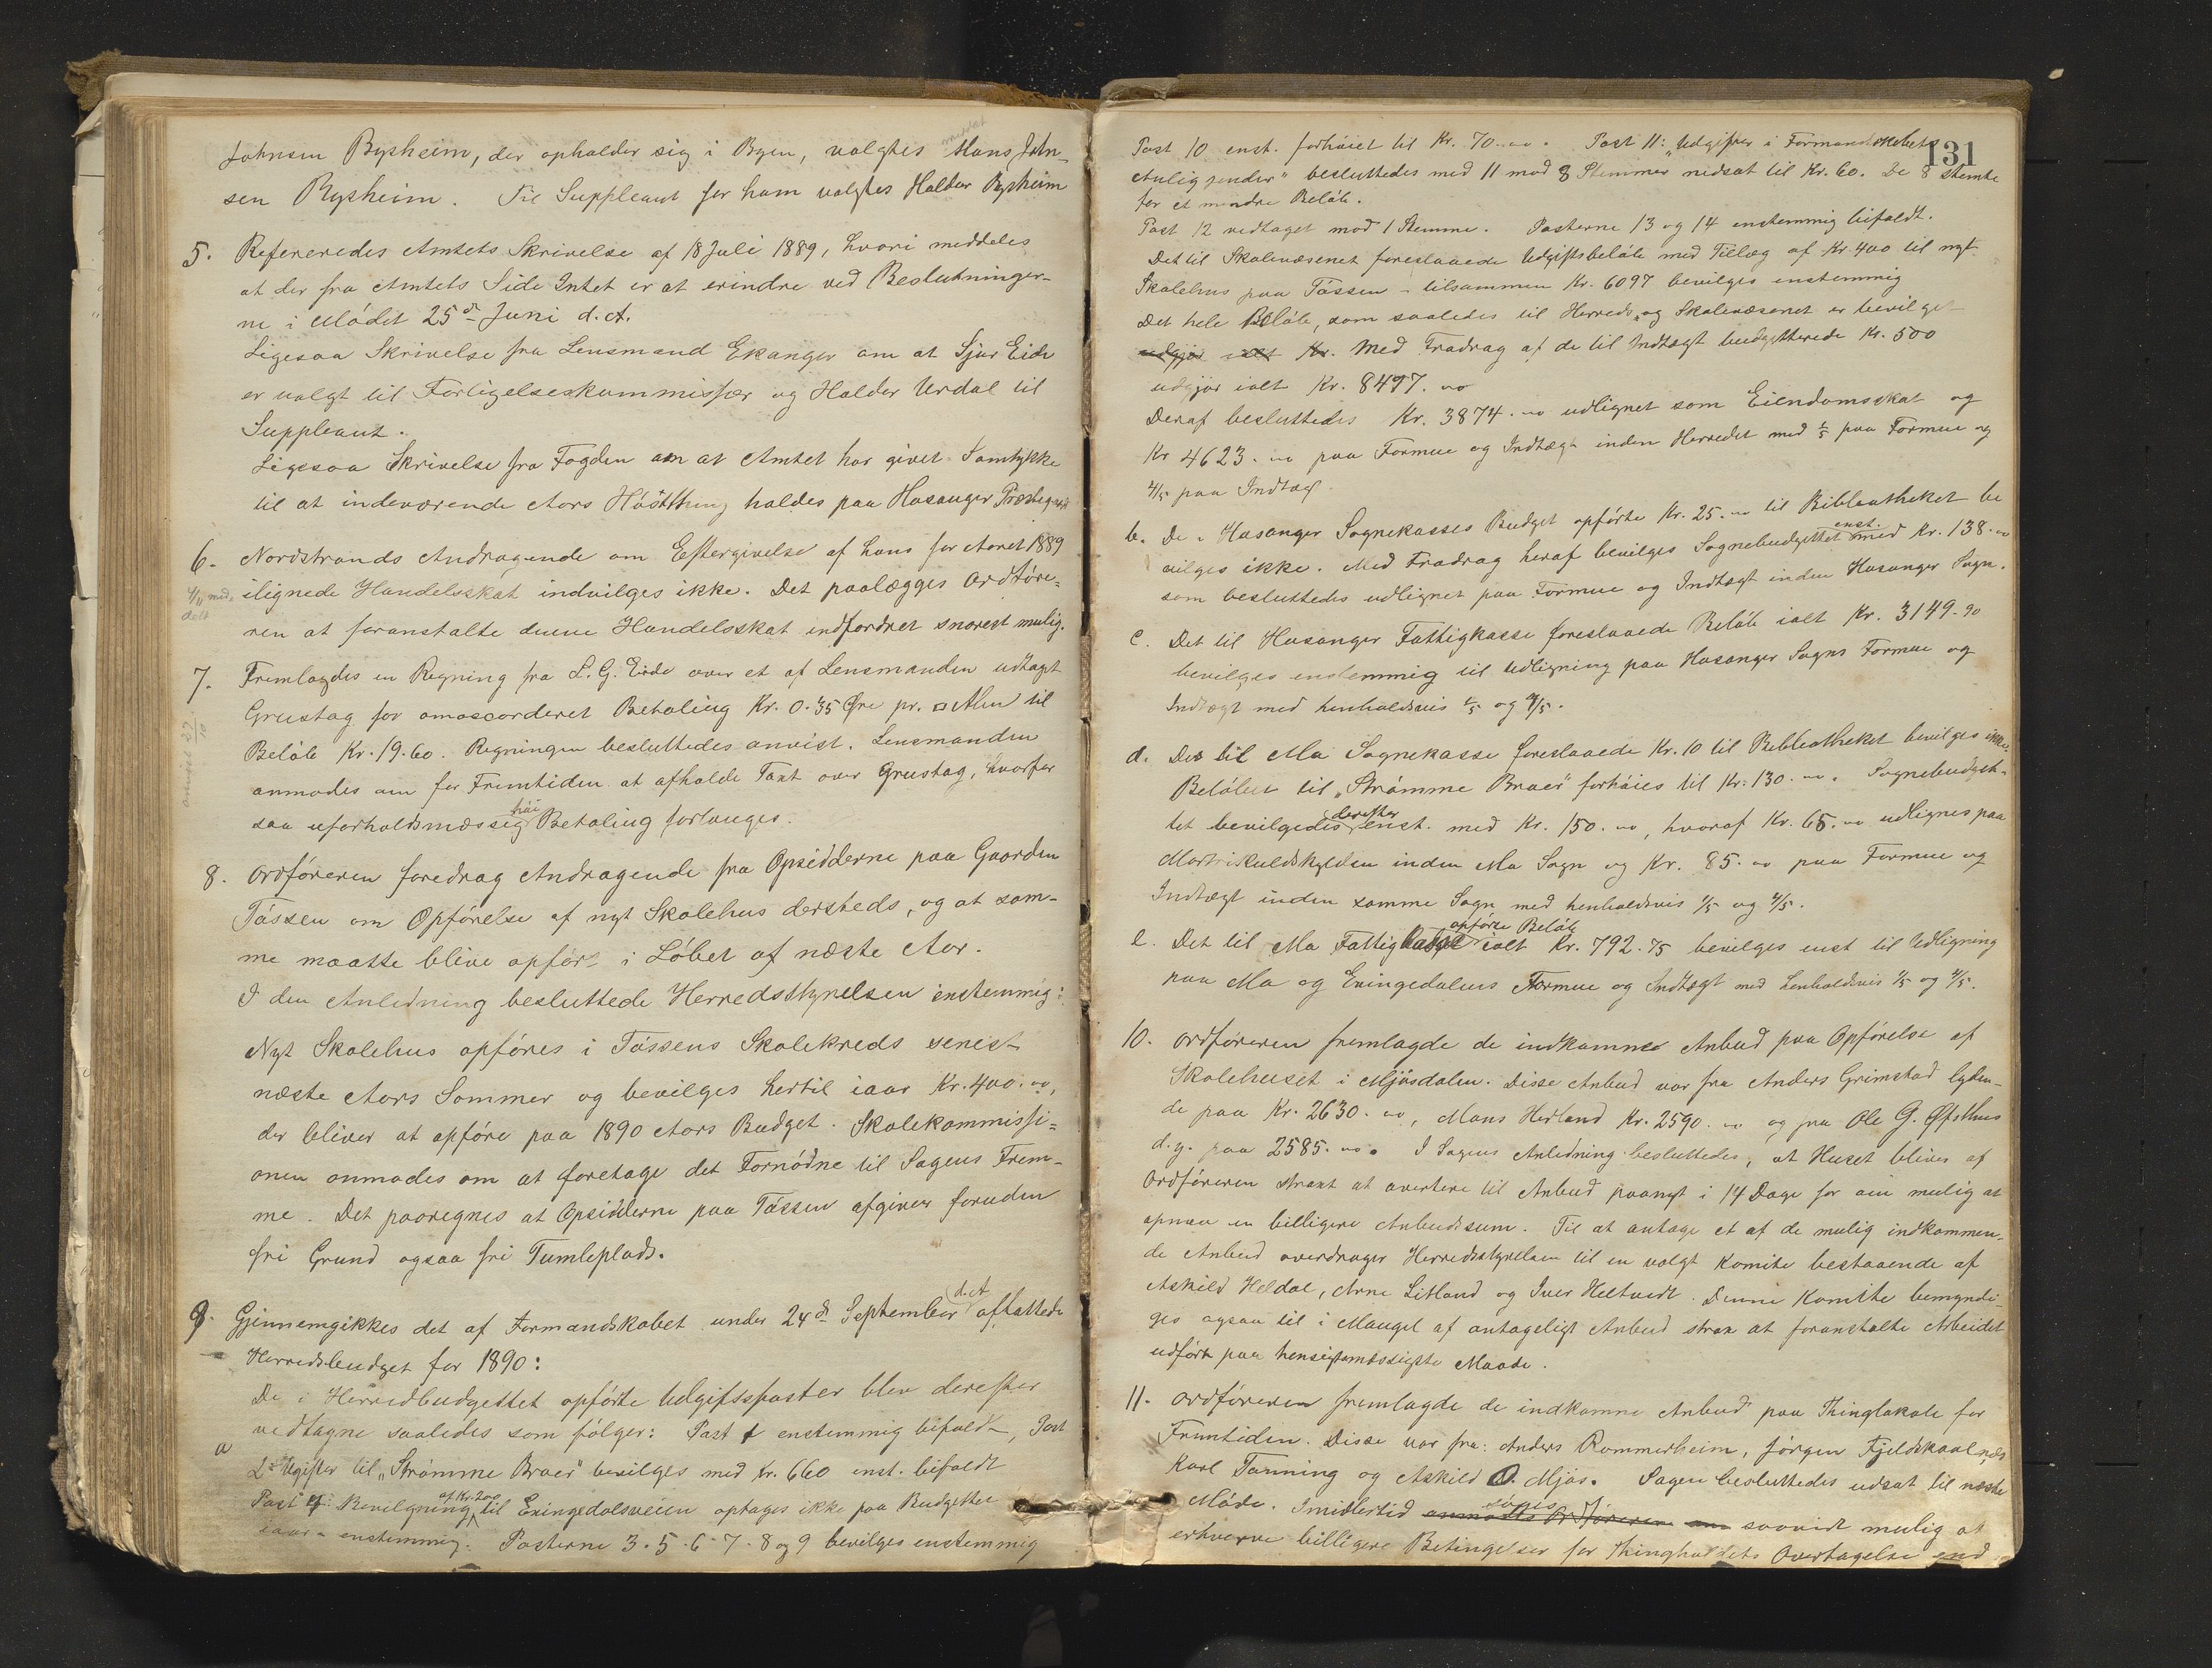 Johnsen Bysheim, der opholder sig i Byen, valgtes Hans John-
sen Bysheim. Til Suppleant for ham valgtes Haldor Bysheim
5. Refereredes Amtets Skrivelse af 18 Juli 1889, hvori meddeles
at der fra Amtets Side Intet er at erindre ved Beslutninger-
ne i Mødet 25de Juni d.A.
Ligesaa Skrivelse fra Lensmand Ekanger om at Sjur Eide
er valgt til Forligelseskommissær og Haldor Urdal til
Suppleant.
Ligesaa Skrivelse fra Fogden om at Amtet har givet Samtykke
til at indeværende Aars Høstthing holdes paa Hosanger Præstegaard
6. Nordstrands Andragende om Eftergivelse af hans for Aaret 1889
ilignede Handelsskat indvilges ikke. Det paalægges Ordføre-
ren at foranstalte denne Handelsskat indfordret snarest mulig.
7. Fremlagdes en Regning fra L. G. Eide over et af Lensmanden udtagt
Grustag for omaccorderet Betaling Kr. 0.35 Øre pr. □ Alen til
Beløb Kr. 19.60. Regningen besluttedes anvist. Lensmanden
anmodes om for Fremtiden at afholde Taxt over Grustag, hvorfor
saa uforholdsmæssig høi Betaling forlanges.
8. Ordføreren foredrog Andragende fra Opsidderne paa Gaarden
Tøssen om Opførelse af nyt Skolehus dersteds, og at sam-
me maatte blive opført i Løbet af næste Aar.
I den Anledning besluttede Herredsstyrelsen enstemmig:
Nyt Skolehus opføres i Tøssens Skolekreds senest
næste Aars Sommer og bevilges hertil iaar Kr. 400.00,
der bliver at opføre paa 1890 Aars Budget. Skolekommissi-
onen anmodes om at foretage det Fornødne til Sagens Frem-
me. Det paaregnes at Opsidderne paa Tøssen afgiver foruden
fri Grund ogsaa fri Tumleplads.
9. Gjennemgikkes det af Formandskabet under 24de September d.A. affattede
Herredsbudget for 1890:
a De i Herredbudgettet opførte Udgiftsposter blev derefter
vedtagne saaledes som følger: Post 1 enstemmig bifaldt, Post
2: Udgifter til "Strømme Broer" bevilges med Kr. 660 enst. bifaldt
Post 4: Bevilgning af Kr. 200 til Exingedalsveien optages ikke paa Budgettet
iaar - enstemmig. Posterne 3. 5. 6. 7. 8 og 9 bevilges enstemmig
131
Post 10 enst. forhøiet til Kr. 70.00. Post 11: "Udgifter i Formandskabets
Anliggender" besluttedes med 11 mod 8 Stemmer nedsat til Kr. 60. De 8 stemte
for et mindre Beløb.
Post 12 vedtaget mod 1 Stemme. Posterne 13 og 14 enstemmig bifaldt.
Det til Skolevæsenet foreslaaede Udgiftsbeløb med Tillæg af Kr. 400 til nyt
Skolehus paa Tøssen - tilsammen Kr. 6097 bevilges enstemmig
Det hele Beløb, som saaledes til Herreds- og Skolevæsenet er bevilget
udgjør ialt Kr. Med Fradrag af de til Indtægt budgetterede Kr. 500
udgjør ialt Kr. 8497.00
Deraf besluttedes Kr. 3874.00 udlignet som Eiendomsskat og
Kr 4623.00 paa Formue og Indtægt inden Herredet med 1/5 paa Formue og
4/5 paa Indtægt.
b. De i Hosanger Sognekasses Budget opførte Kr. 25.00 til Bibliotheket be
vilges ikke. Med Fradrag heraf bevilges Sognebudgettet enst. med Kr. 138.00
som besluttedes udlignet paa Formue og Indtægt inden Hosanger Sogn.
c. Det til Hosanger Fattigkasse foreslaaede Beløb ialt Kr. 3149.90
bevilges enstemmig til Udligning paa Hosanger Sogns Formue og
Indtægt med henholdsvis 1/5 og 4/5.
d. Det til Mo Sognekasse foreslaaede Kr. 10 til Bibliotheket bevilges ikke.
Beløbet til "Strømme Broer" forhøies til Kr. 130.00. Sognebudget-
tet bevilgedes derefter enst. med Kr. 150.00, hvoraf Kr. 65.00 udlignes paa
Matrikulskylden inden Mo Sogn og Kr. 85.00 paa Formue og
Indtægt inden samme Sogn med henholdsvis 1/5 og 4/5.
e. Det til Mo Fattigkasse opførte Beløb ialt Kr. 792.75 bevilges enst til Udligning
paa Mo og Exingedalens Formue og Indtægt med henholdsvis 1/5 og 4/5.
10. Ordføreren fremlagde de indkomne Anbud paa Opførelse af
Skolehuset i Mjøsdalen. Disse Anbud var fra Anders Grimstad lyden-
de paa Kr. 2630.00, Mons Herland Kr. 2590.00 og fra Ole G. Øfsthus
d.y. paa 2585.00. I Sagens Anledning besluttedes, at Huset bliver af
Ordføreren strax at avertere til Anbud paanyt i 14 Dage for om mulig at
opnaa en billigere Anbudssum. Til at antage et af de mulig indkommen-
de Anbud overdrager Herredsstyrelsen til en valgt Komite bestaaende af
Askild Heldal, Arne Litland og Iver Heltvedt. Denne Komite bemyndi-
ges ogsaa til i Mangel af antageligt Anbud strax at foranstalte Arbeidet
udført paa hensigtsmæssigste Maade.
11. Ordføreren fremlagde de indkomne Anbud paa Thinglokale for
Fremtiden. Disse var fra: Anders Rommerheim, Jørgen Fjeldskaalnæs
Karl Tørning og Askild O. Mjøs. Sagen besluttedes udsat til næste
Møde. Imidlertid anmodes Ordføreren om søges saavidt mulig at
erhverve billigere Betingelser for Thingholdets Overtagelse end